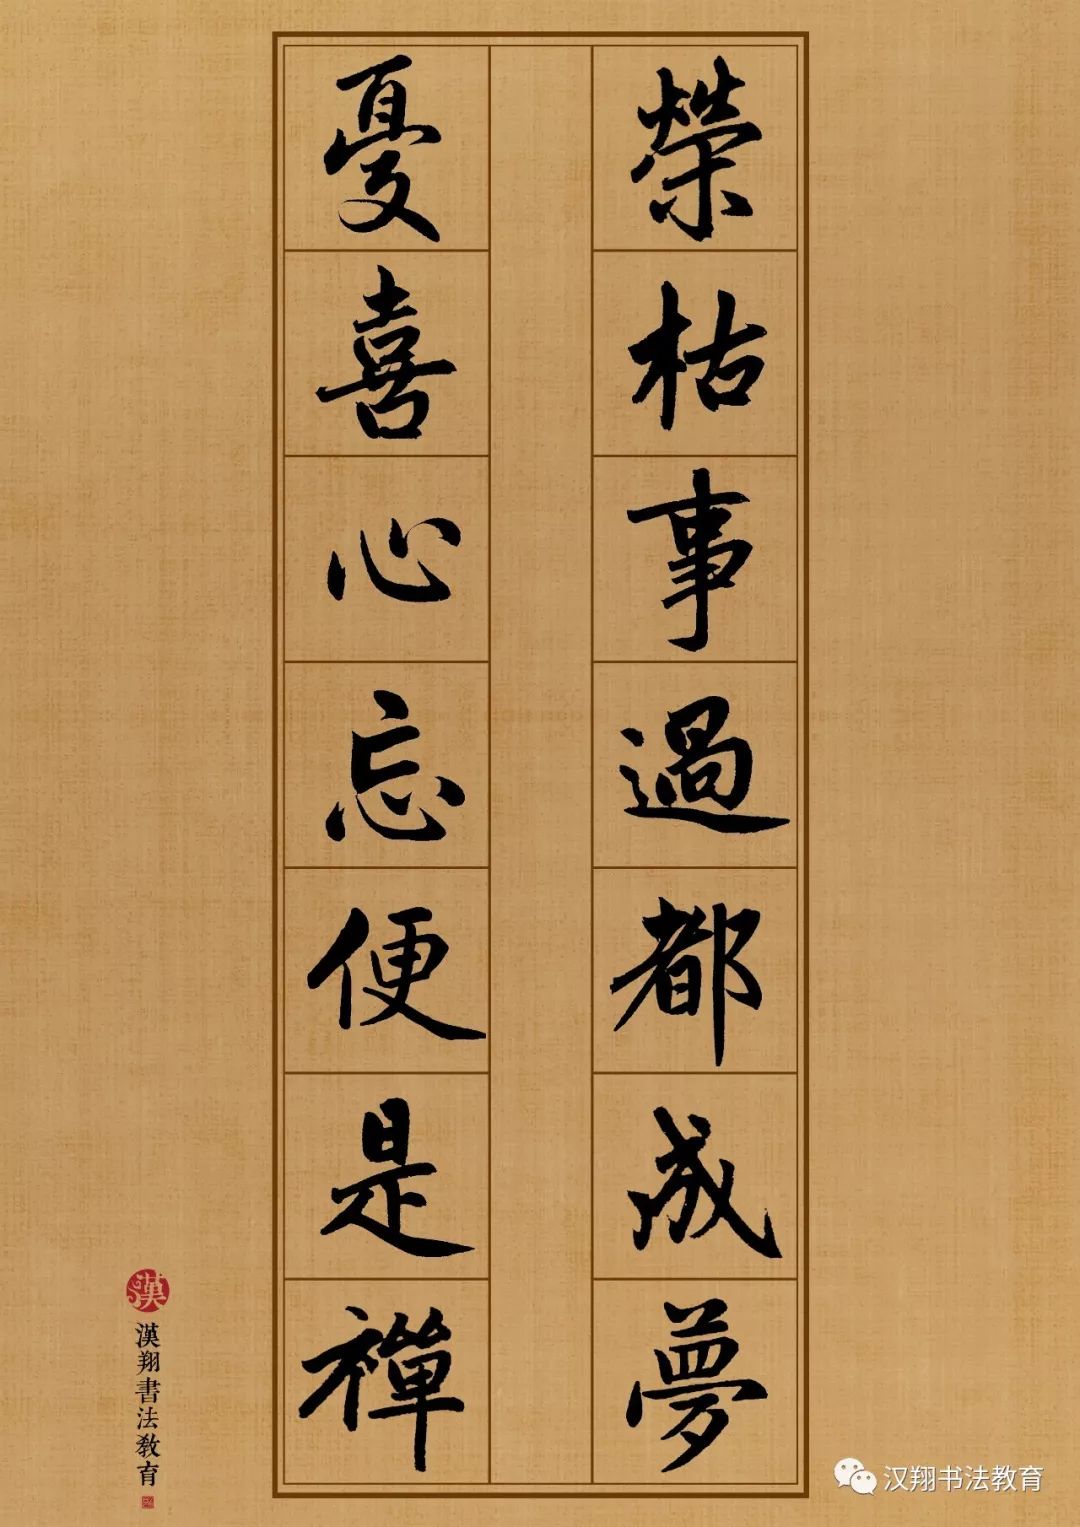 榮枯事過都成夢
憂喜心忘便是禪
漢
漢翔書法教育
汉翔书法教育